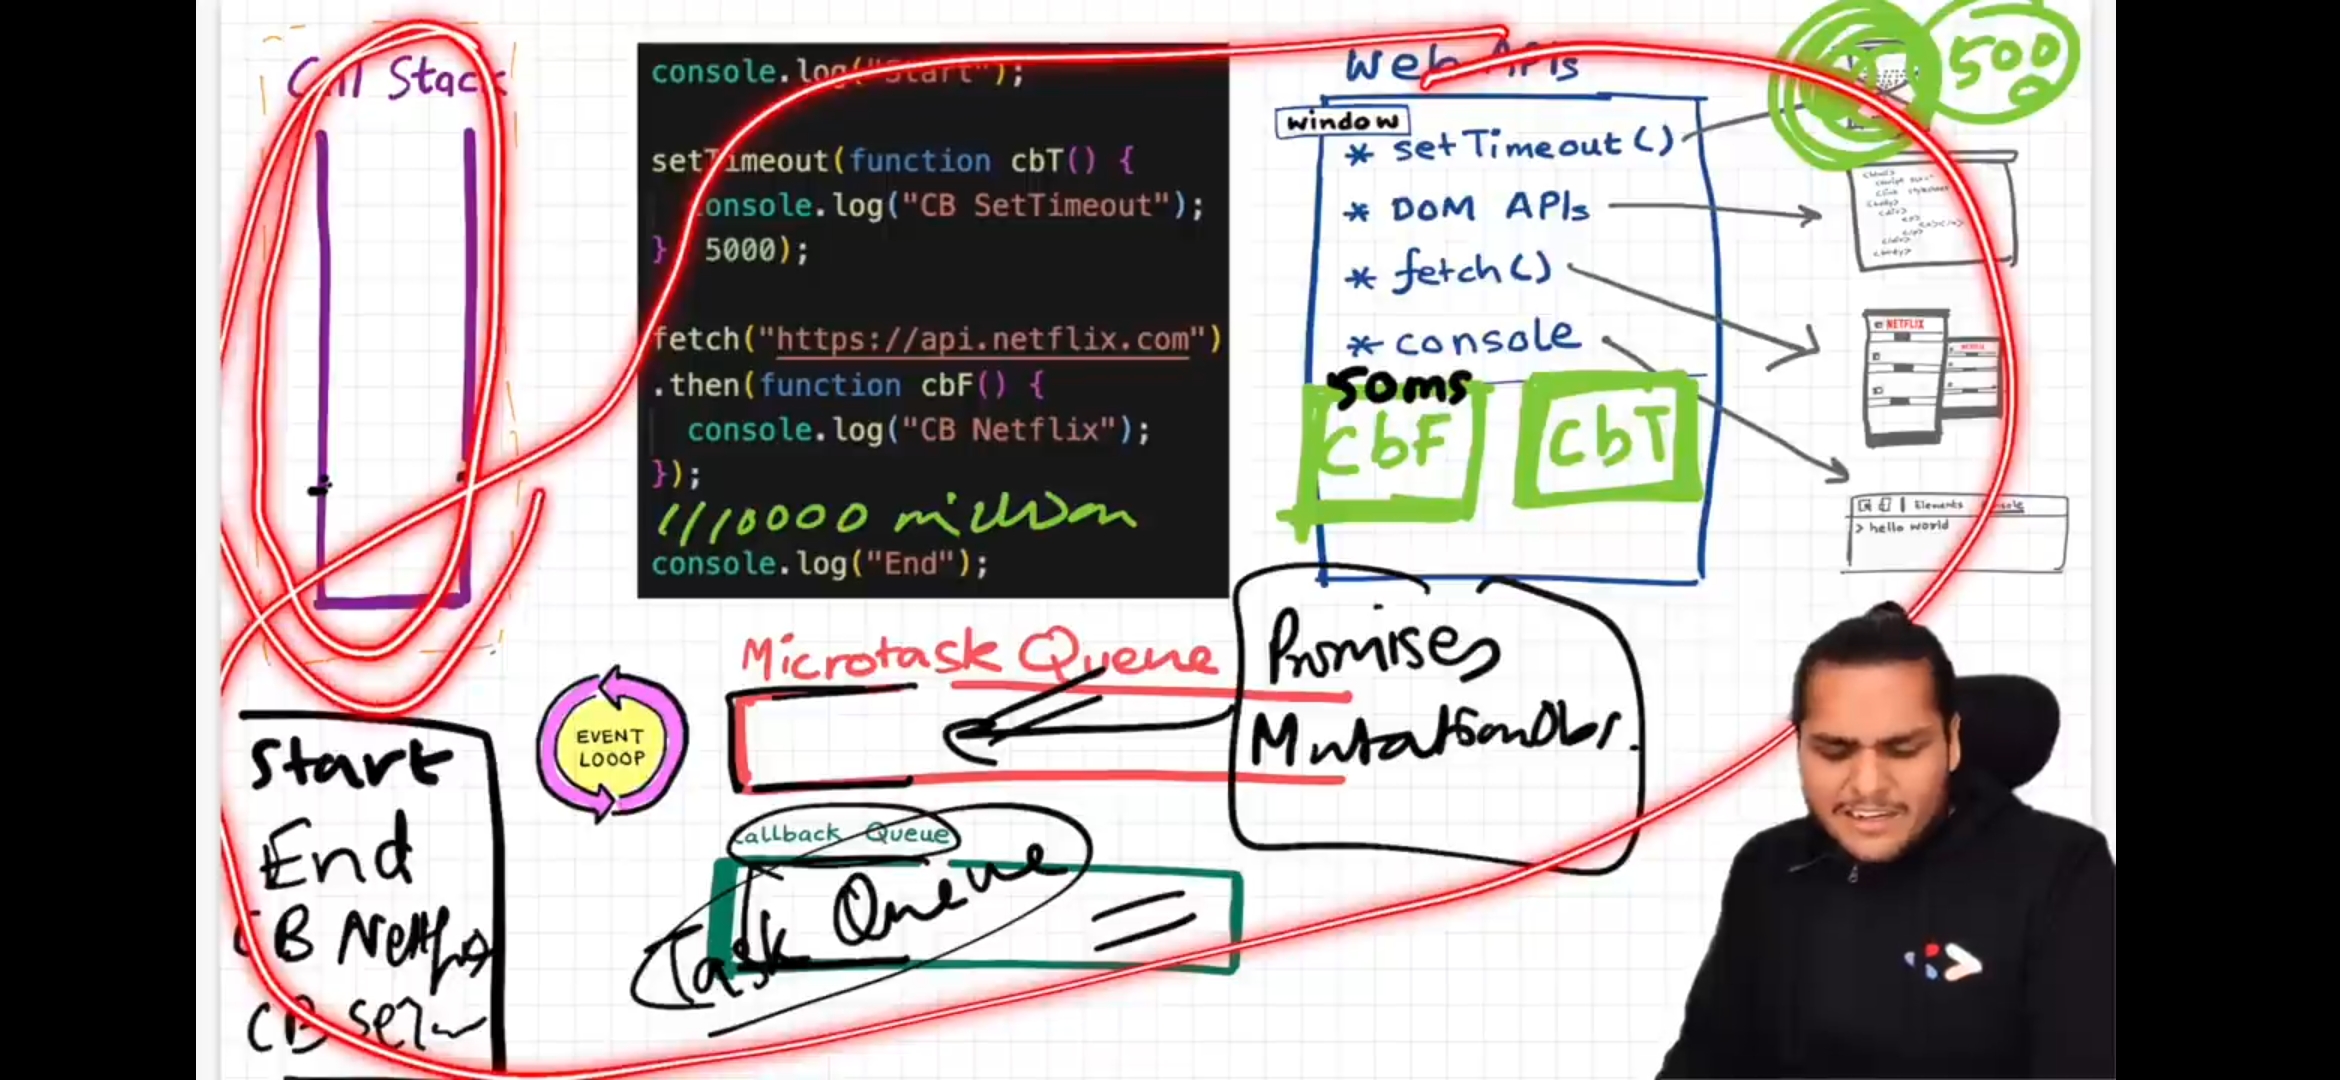 Call Stack
console.log("Start");
setTimeout(function cbT() {
console.log("CB SetTimeout");
} 5000);
fetch("https://api.netflix.com")
.then(function cbF() {
console.log("CB Netflix");
});
10000 million
console.log("End");
Web APIs
window
* setTimeout()
* DOM APIs
* fetch()
* console
50ms
cbF
cbT
500
NETFLIX
Elements
> hello world
Microtask Queue
Promises
EVENT
LOOOP
Callback Queue
Task Queue
Start
End
CB Netflix